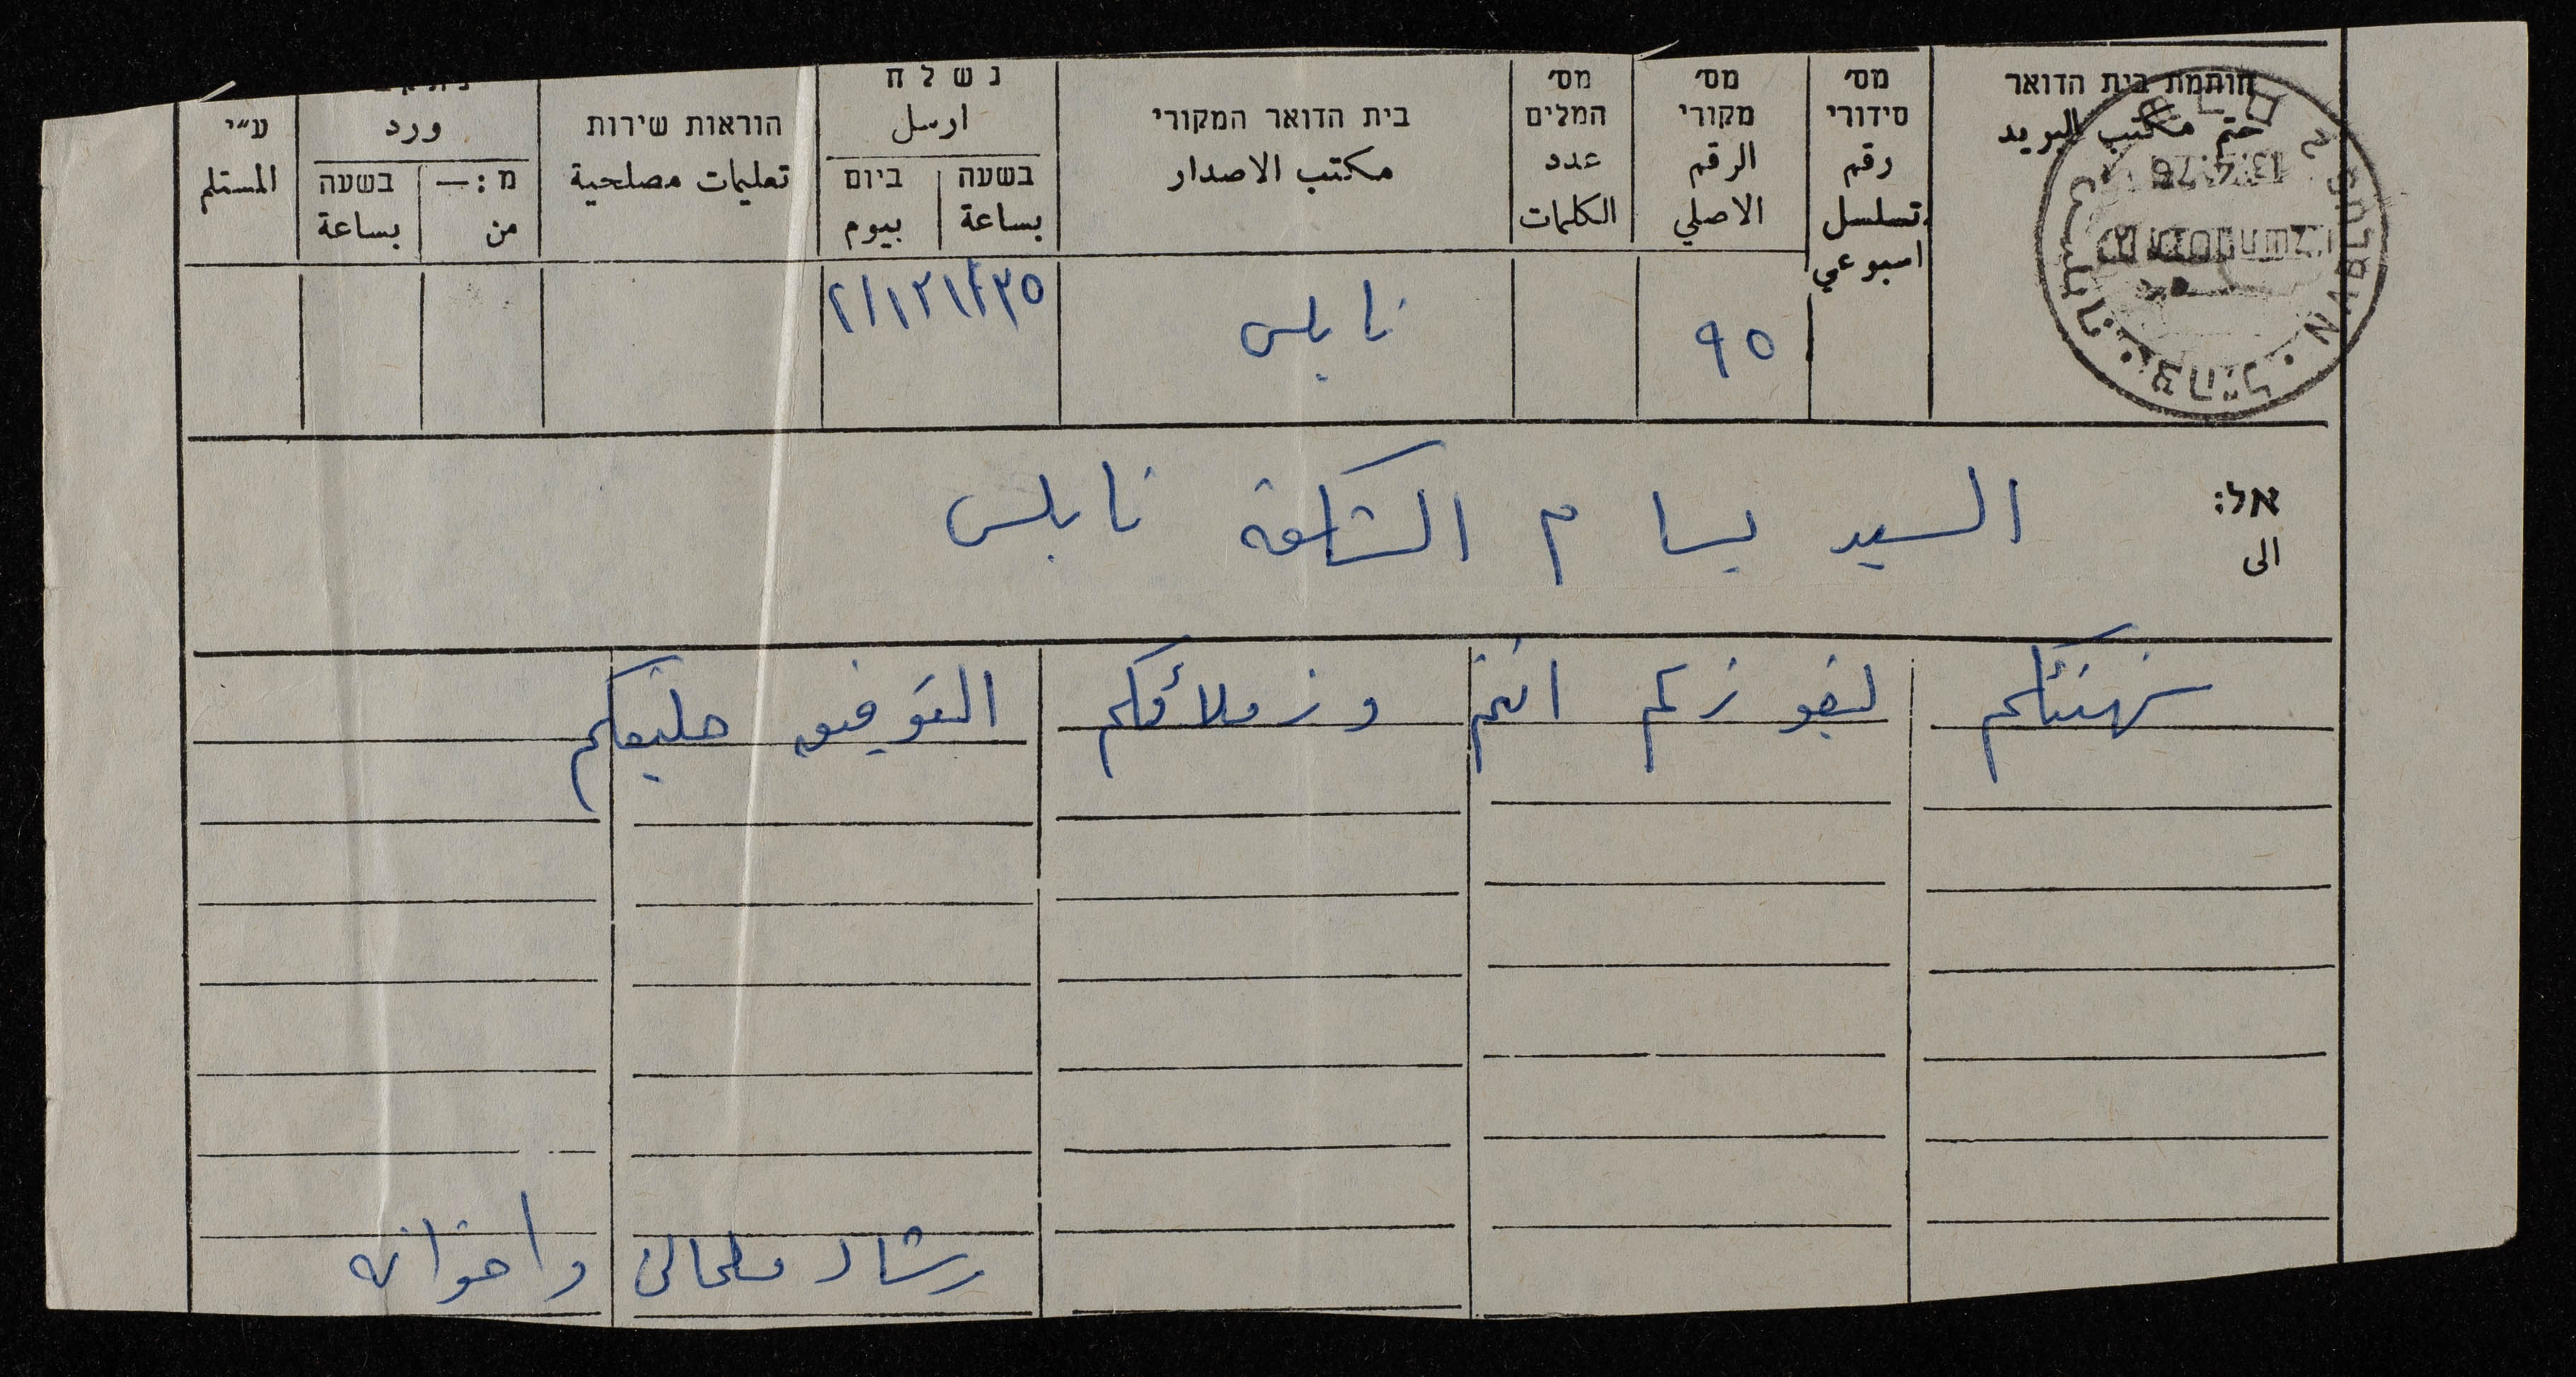 חותמת בית הדואר
ختم مكتب البريد
מס׳ סידורי
رقم تسلسل اسبوعي
מס׳ מקורי
الرقم الاصلي
מס׳ המלים
عدد الكلمات
בית הדואר המקורי
مكتب الاصدار
נשלח
ارسل
בשעה ביום
بساعة بيوم
הוראות שירות
تعليمات مصلحية
ورد
מ:— בשעה
من بساعة
ע״י
المستلم
NABLUS
13.4.76
נابلس
צה״ל
٩٥
نابلس
אל:
الى
السيد بسام الشكعة نابلس
نهنئكم لفوزكم انتم وزملائكم التوفيق حليفكم
رشاد ملحالى واخوانه